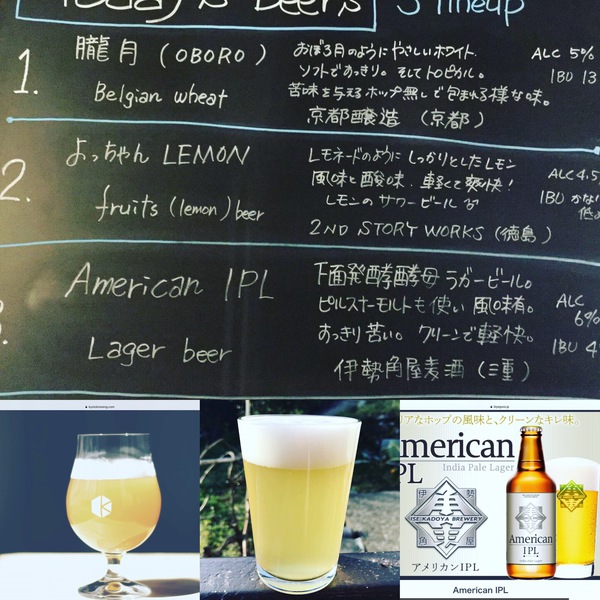 Today's Beers
3 lineup
1.
朧月 (OBORO)
Belgian wheat
おぼろ月のようにやさしいホワイト
ソフトですっきり。そしてトロピカル。
苦味を与えるホップ無しで包まれる様な味。
京都醸造 (京都)
ALC 5%
IBU 13
2.
よっちゃん LEMON
fruits (lemon) beer
レモネードのように しっかりとしたレモン
風味と酸味、軽くて爽快!
レモンのサワービール
2ND STORY WORKS (徳島)
ALC 4.5
IBU かなり
低め
3.
American IPL
Lager beer
下面発酵酵母 ラガービール。
ピルスナーモルトも使い 風味有。
すっきり苦い。クリーンで軽快。
伊勢角屋麦酒 (三重)
ALC
6%
IBU 4
リアなホップの風味と、クリーンなキレ味。
American
IPL
India Pale Lager
伊勢
ISEKADOYA BREWERY
角屋
アメリカンIPL
American
IPL
American IPL